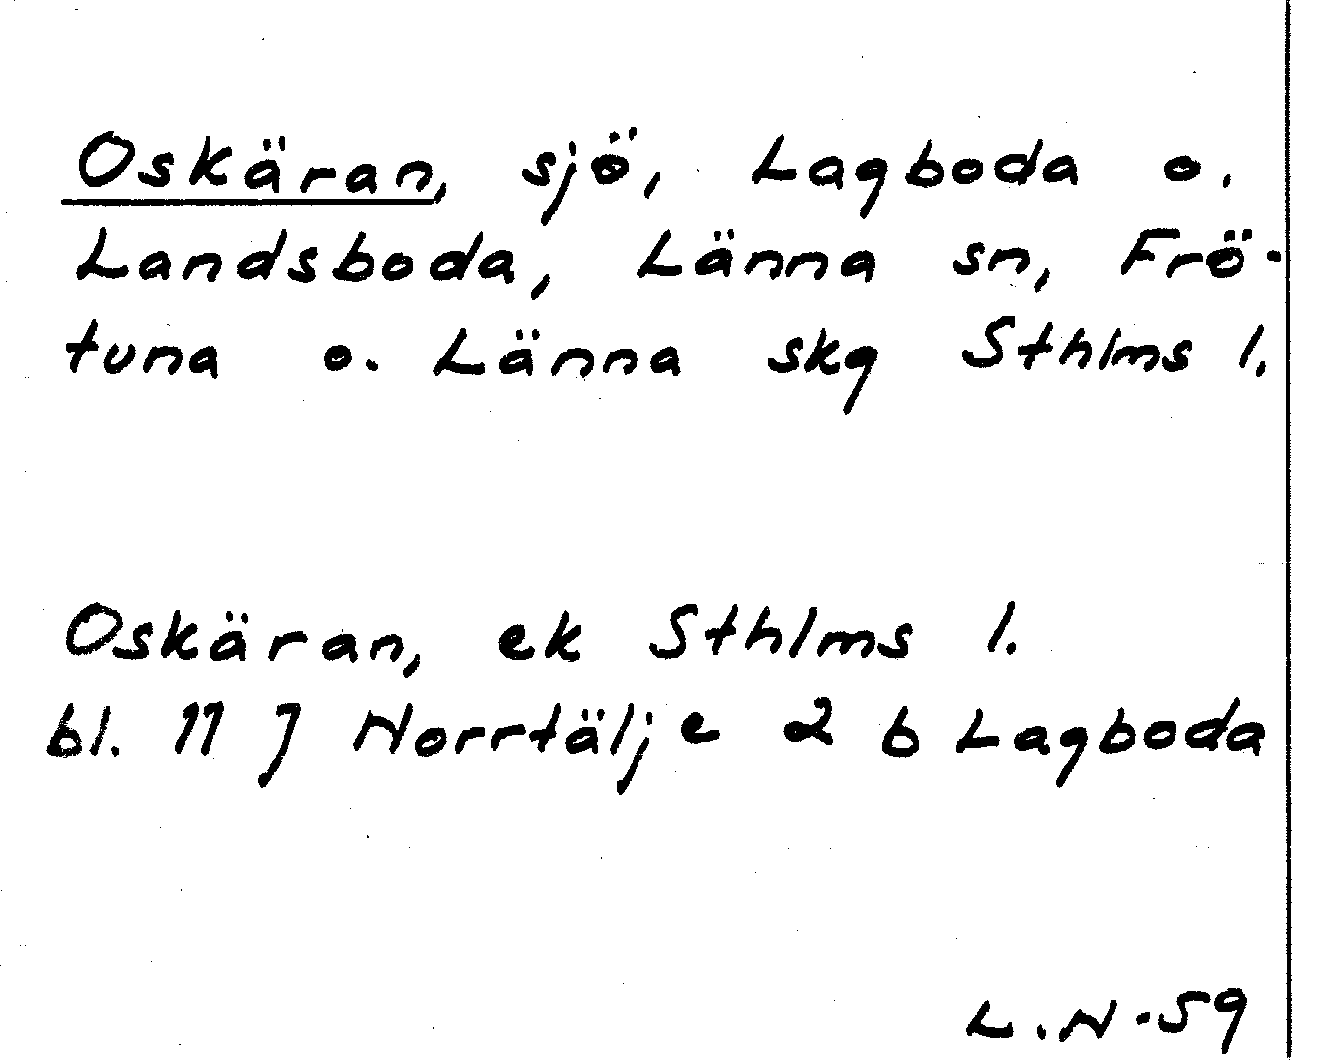 Oskäran, sjö, Lagboda o.
Landsboda, Länna sn, Frö-
tuna o. Länna skg Sthlms l.
Oskäran, ek Sthlms l.
bl. 11 J Norrtälje 2 b Lagboda
L.N-59